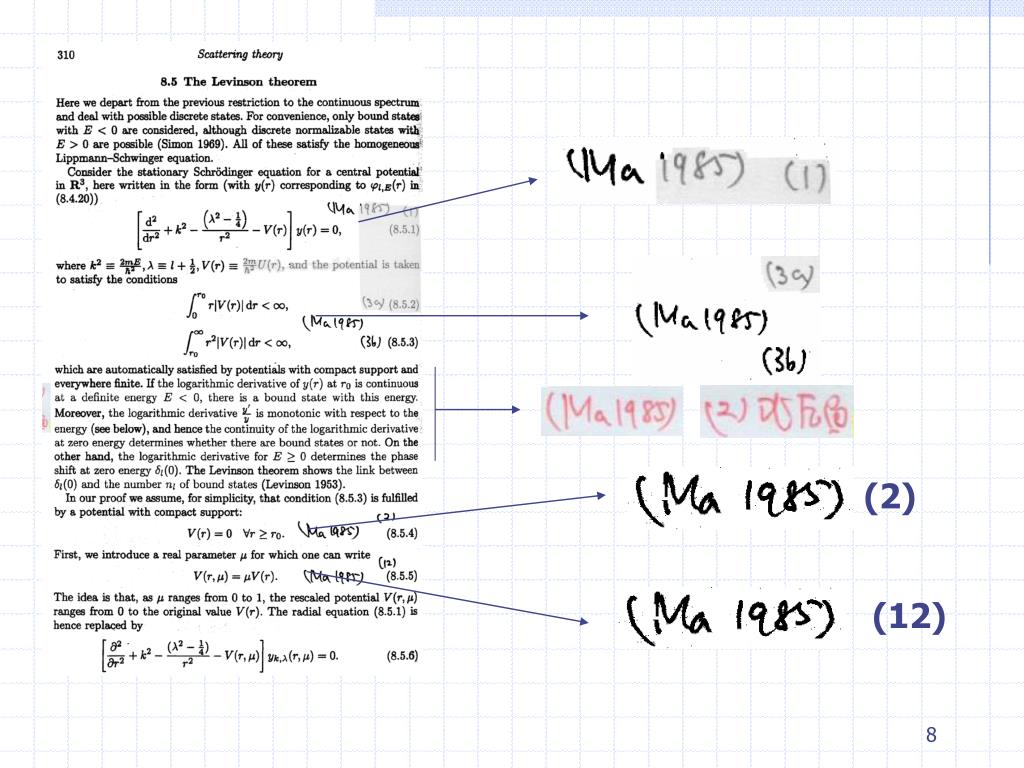 310 Scattering theory
8.5 The Levinson theorem
Here we depart from the previous restriction to the continuous spectrum
and deal with possible discrete states. For convenience, only bound states
with E < 0 are considered, although discrete normalizable states with
E > 0 are possible (Simon 1969). All of these satisfy the homogeneous
Lippmann–Schwinger equation.
Consider the stationary Schrödinger equation for a central potential
in R³, here written in the form (with y(r) corresponding to φ_{l,E}(r) in
(8.4.20))
(Ma 1985) (1)
[d²/dr² + k² − (λ² − ¼)/r² − V(r)] y(r) = 0, (8.5.1)
where k² ≡ 2mE/ħ², λ ≡ l + ½, V(r) ≡ 2m/ħ² U(r), and the potential is taken
to satisfy the conditions
∫₀^{r₀} r|V(r)| dr < ∞, (3a) (8.5.2)
(Ma 1985)
∫_{r₀}^∞ r²|V(r)| dr < ∞, (3b) (8.5.3)
which are automatically satisfied by potentials with compact support and
everywhere finite. If the logarithmic derivative of y(r) at r₀ is continuous
at a definite energy E < 0, there is a bound state with this energy.
Moreover, the logarithmic derivative y′/y is monotonic with respect to the
energy (see below), and hence the continuity of the logarithmic derivative
at zero energy determines whether there are bound states or not. On the
other hand, the logarithmic derivative for E ≥ 0 determines the phase
shift at zero energy δ_l(0). The Levinson theorem shows the link between
δ_l(0) and the number n_l of bound states (Levinson 1953).
In our proof we assume, for simplicity, that condition (8.5.3) is fulfilled
by a potential with compact support:
(2)
V(r) = 0 ∀r ≥ r₀. (Ma 1985) (8.5.4)
First, we introduce a real parameter μ for which one can write
(12)
V(r, μ) = μV(r). (Ma 1985) (8.5.5)
The idea is that, as μ ranges from 0 to 1, the rescaled potential V(r, μ)
ranges from 0 to the original value V(r). The radial equation (8.5.1) is
hence replaced by
[∂²/∂r² + k² − (λ² − ¼)/r² − V(r, μ)] y_{k,λ}(r, μ) = 0. (8.5.6)
(Ma 1985) (1)
(3a)
(Ma 1985)
(3b)
(Ma 1985) (2)
(Ma 1985) (2)
(Ma 1985) (12)
8